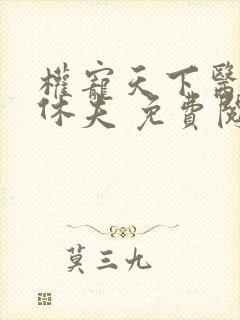 權寵天下醫
休夫 免費閱
莫三九